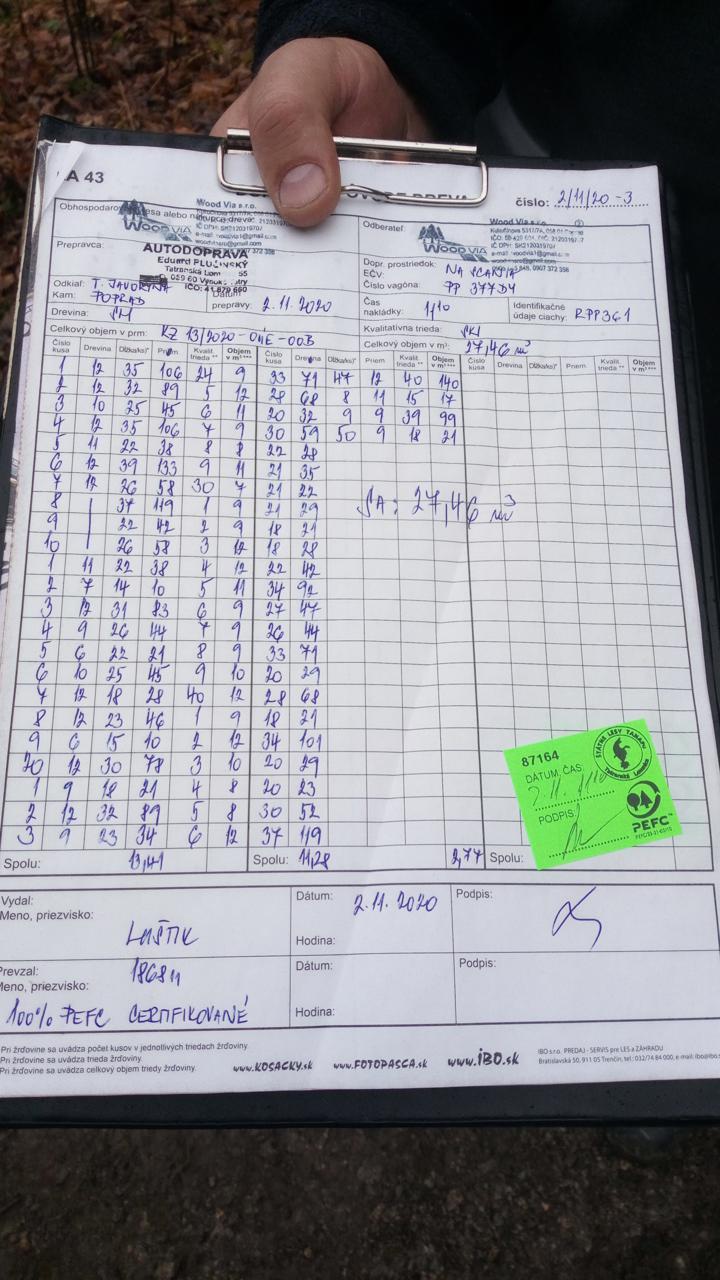 A 43
číslo: 2/11/20 -3
Wood Via s.r.o.
WOOD VIA
Odberateľ:
WOOD VIA
Prepravca:
AUTODOPRAVA
Tatranská Lomnica 55
059 60
IČO: 41 879 660
Dopr. prostriedok:
EČV:
Číslo vagóna: PP 377DY
Odkiaľ: T. JAVORINA
Kam: POPRAD
Dátum prepravy: 2.11.2020
Čas nakládky: 1110
Identifikačné údaje ciachy: RPP361
Drevina: SM
Kvalitatívna trieda:
Celkový objem v prm: KZ 13/2020-04E-00B
Celkový objem v m³: 27,46 m³
Číslo kusa Drevina Dĺžka(ks)* Priem Kvalit. trieda ** Objem v m³*** Číslo kusa Drevina Dĺžka(ks)* Priem Kvalit. trieda ** Objem v m³*** Číslo kusa Drevina Dĺžka(ks)* Priem. Kvalit. trieda ** Objem v m³***
1 12 35 106 24 9 33 71 47 12 40 140
2 12 32 89 5 12 28 68 8 11 15 17
3 10 25 45 6 11 20 32 9 9 39 99
4 12 35 106 7 9 30 59 50 9 18 21
5 11 22 38 8 8 22 28
6 12 39 133 9 11 21 35
7 12 26 58 30 7 21 22
8 37 119 1 9 21 29
9 22 42 2 9 18 21
10 26 58 3 12 18 28
1 11 22 38 4 12 22 42
2 7 14 10 5 11 34 92
3 12 31 83 6 9 27 47
4 9 26 44 7 9 26 44
5 6 22 21 8 9 33 71
6 10 25 45 9 10 20 29
7 12 18 28 40 12 28 68
8 12 23 46 1 9 18 21
9 6 15 10 2 12 34 101
20 12 30 78 3 10 20 29
1 9 18 21 4 8 20 23
2 12 32 89 5 8 30 52
3 9 23 34 6 12 37 119
SA: 27,46 m³
Spolu: 13,41 Spolu: 11,28 2,77 Spolu:
87164
DÁTUM, ČAS
PODPIS:
ŠTÁTNE LESY TANAPu
Tatranská Lomnica
PEFC
Vydal:
Meno, priezvisko:
LUŠTIK
Dátum: 2.11.2020
Hodina:
Podpis:
Prevzal:
Meno, priezvisko:
18684
100% PEFC CERTIFIKOVANÉ
Dátum:
Hodina:
Podpis:
Pri žrďovine sa uvádza počet kusov v jednotlivých triedach žrďoviny.
Pri žrďovine sa uvádza trieda žrďoviny.
Pri žrďovine sa uvádza celkový objem triedy žrďoviny.
www.KOSACKY.sk www.FOTOPASCA.sk www.iBO.sk
IBO s.r.o. PREDAJ - SERVIS pre LES a ZÁHRADU
Bratislavská 50, 911 05 Trenčín, tel.: 032/74 84 000, e-mail: ibo@ibo.s